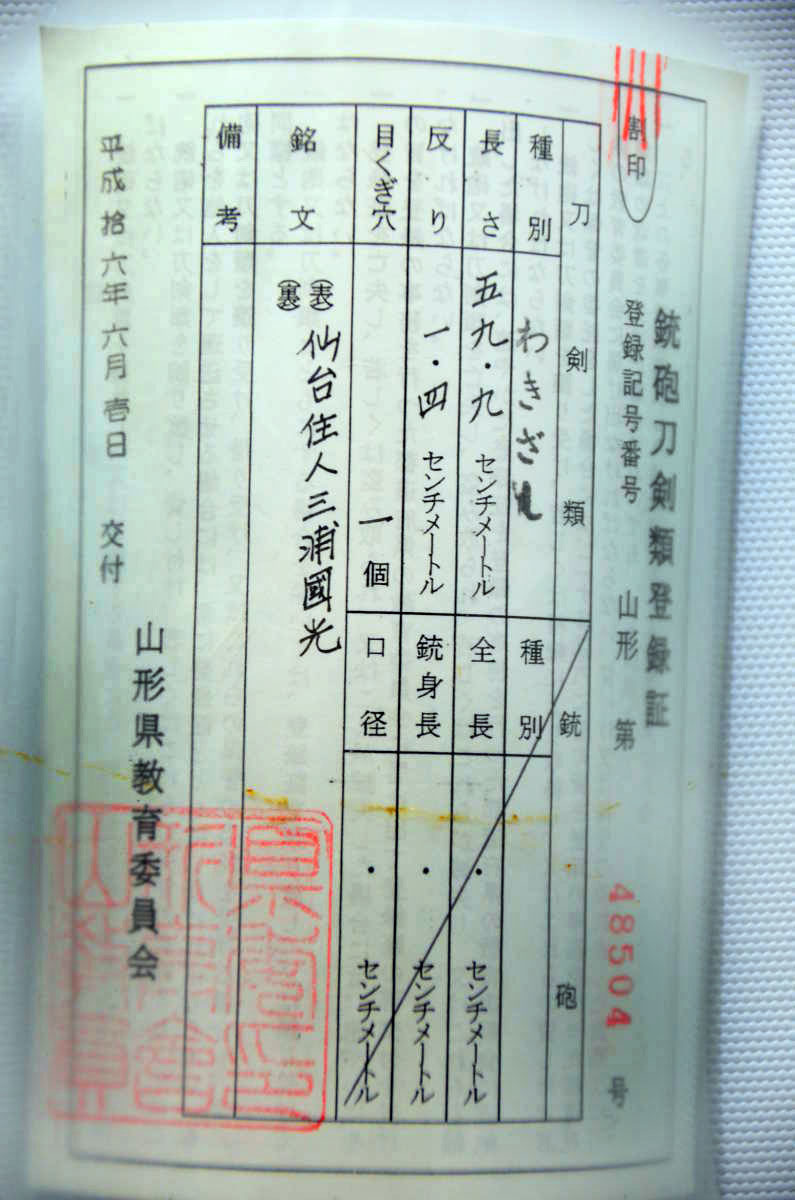 割印
銃砲刀剣類登録証
登録記号番号 山形 第 48504 号
刀剣類
種別 わきざし
長さ 五九・九 センチメートル
反り 一・四 センチメートル
目くぎ穴 一個
銘文 (表) 仙台住人三浦國光
(裏)
備考
銃砲
種別
全長 ・ センチメートル
銃身長 ・ センチメートル
口径 ・ センチメートル
平成拾六年六月壱日 交付
山形県教育委員会